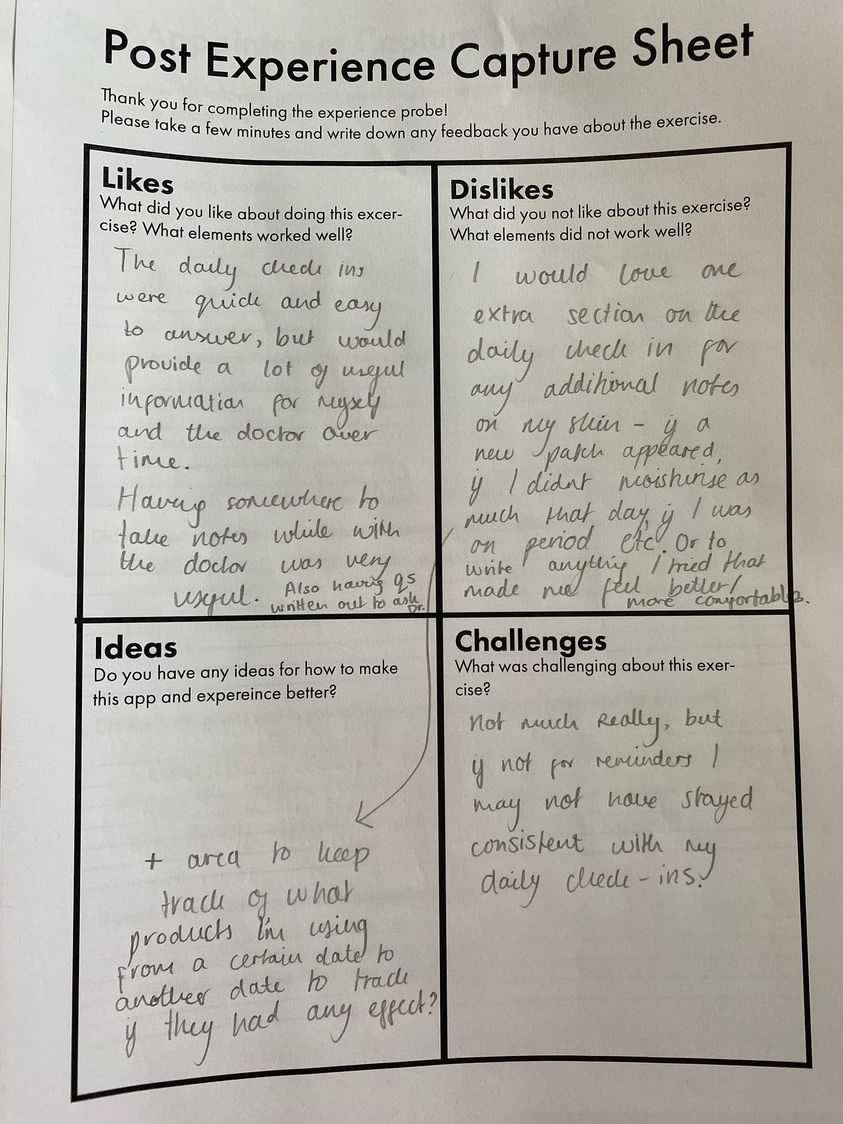 Post Experience Capture Sheet
Thank you for completing the experience probe!
Please take a few minutes and write down any feedback you have about the exercise.
Likes
What did you like about doing this excer-
cise? What elements worked well?
The daily check ins
were quick and easy
to answer, but would
provide a lot of useful
information for myself
and the doctor over
time.
Having somewhere to
take notes while with
the doctor was very
useful. Also having Qs
written out to ask
Dr.
Dislikes
What did you not like about this exercise?
What elements did not work well?
I would love one
extra section on the
daily check in for
any additional notes
on my skin - if a
new patch appeared,
if I didnt moisturise as
much that day, if I was
on period etc. Or to
write anything I tried that
made me feel better/
more comfortable.
Ideas
Do you have any ideas for how to make
this app and expereince better?
+ area to keep
track of what
products I'm using
from a certain date to
another date to track
if they had any effect?
Challenges
What was challenging about this exer-
cise?
Not much really, but
if not for reminders I
may not have stayed
consistent with my
daily check-ins.